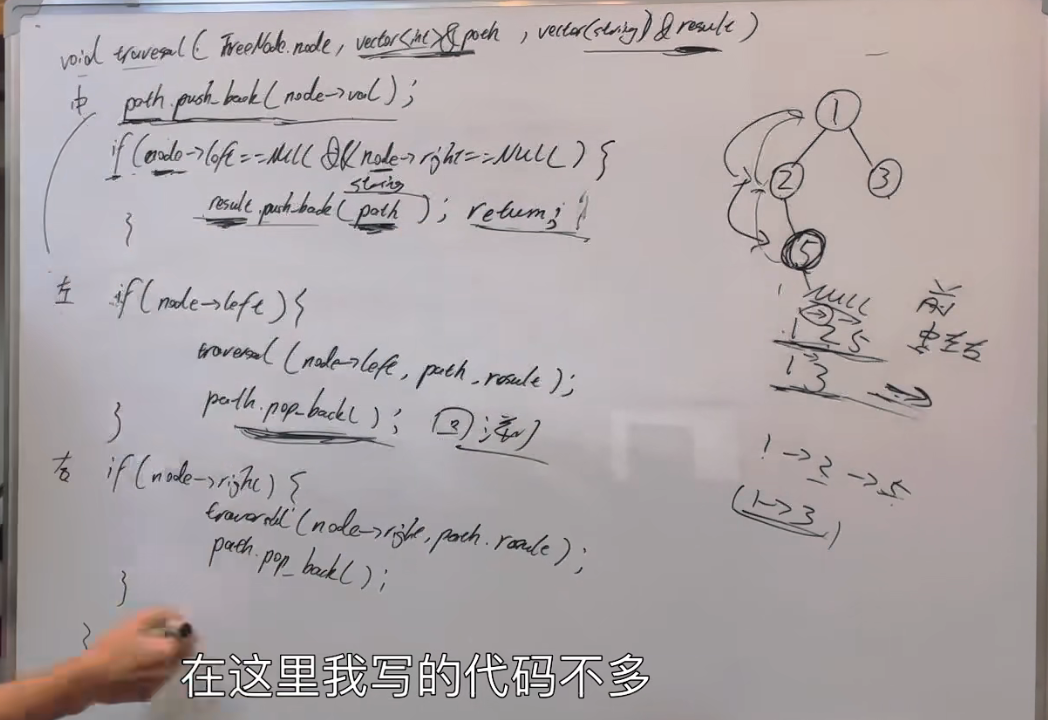 void traversal( TreeNode.node, vector(int)& path , vector(string)& result )
中 path.push_back(node->val);
if(node->left==NULL && node->right==NULL) {
string
result.push_back(path); return;
}
左 if(node->left){
traversal(node->left, path, result);
path.pop_back();
}
右 if(node->right) {
traversal(node->right, path, result);
path.pop_back();
}
}
1
2
3
5
NULL
1 2 5
1 3
前
中左右
1->2->5
(1->3)
在这里我写的代码不多